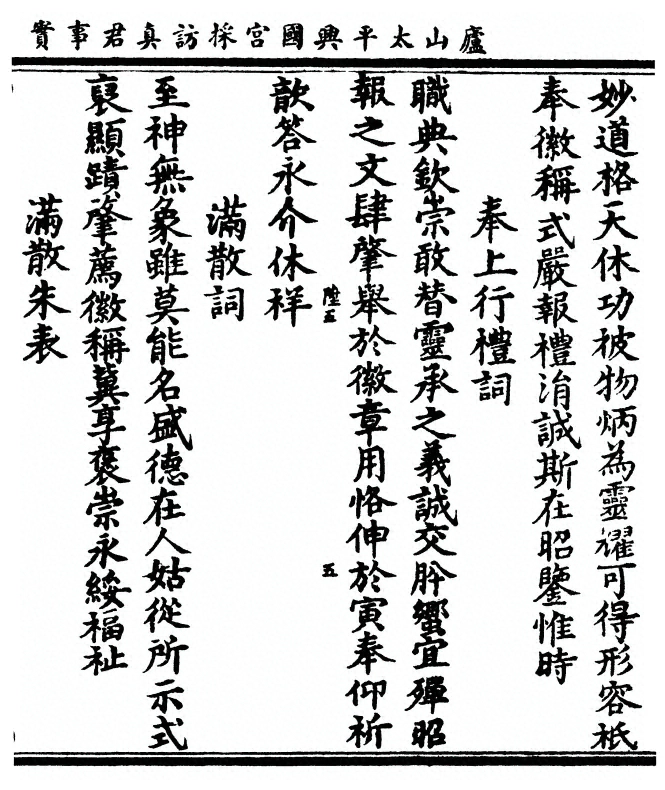 廬山太平興國宮採訪真君事實
妙道格天休功被物炳為靈耀可得形容祇
奉徽稱式嚴報禮涓誠斯在昭鑒惟時
奉上行禮詞
職典欽崇敢替靈承之義誠交肸蠁宜殫昭
報之文肆肇舉於徽章用恪伸於寅奉仰祈
歆答永介休祥
陸五
五
滿散詞
至神無象雖莫能名盛德在人姑從所示式
裒顯蹟肇薦徽稱冀享褒崇永綏福祉
滿散朱表